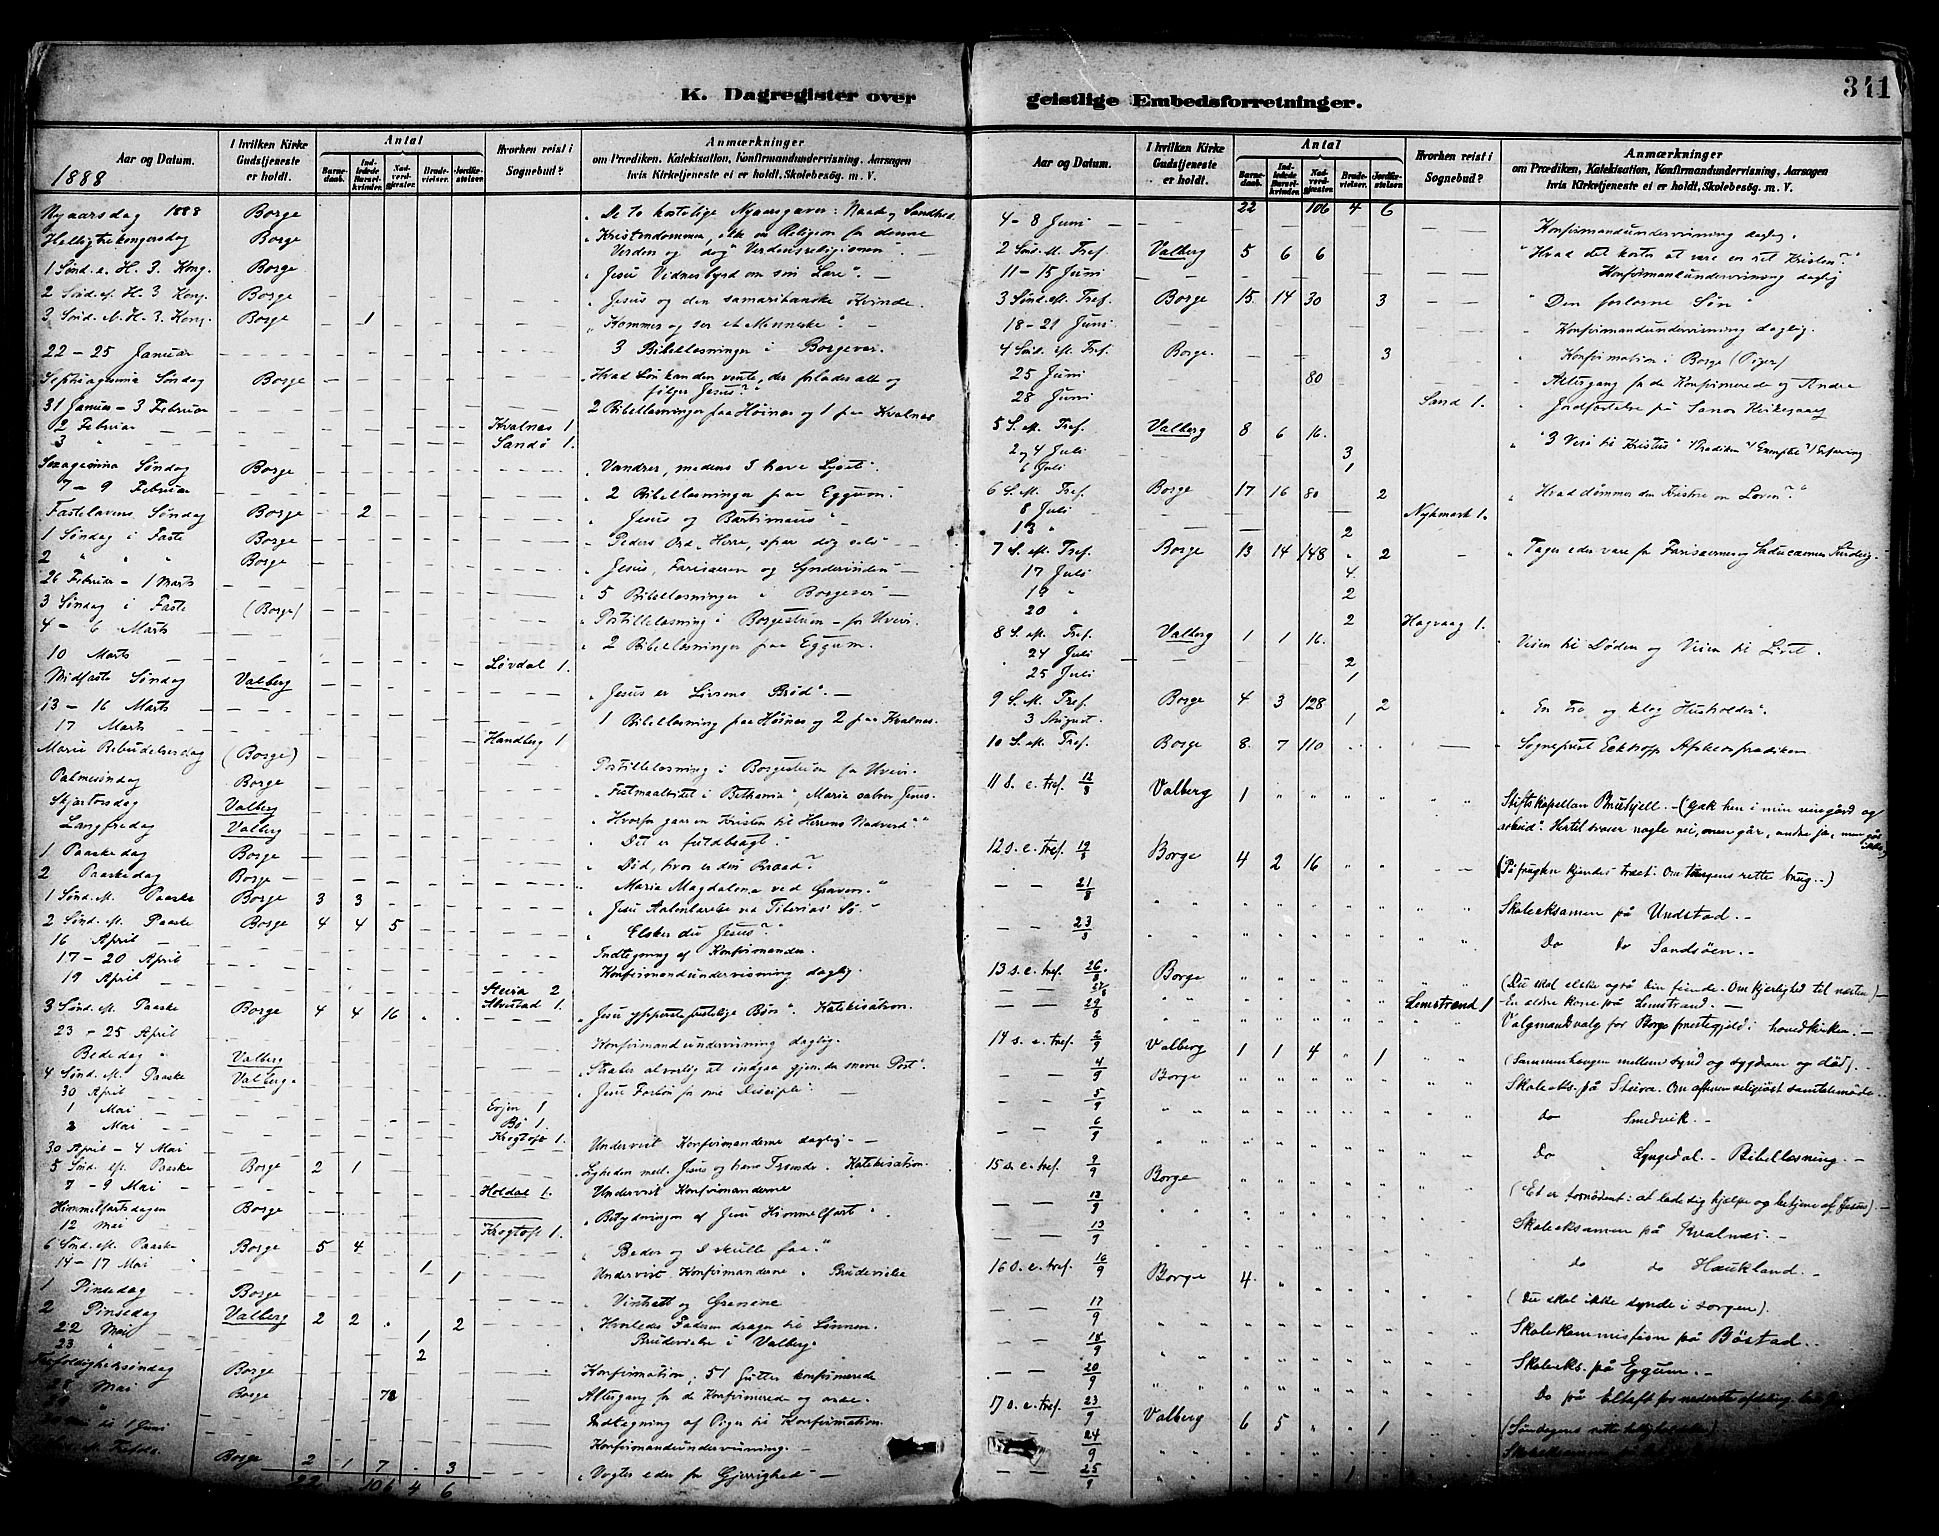 341
K. Dagregister over geistlige Embedsforretninger.
Aar og Datum. I hvilken Kirke Gudstjeneste er holdt. Antal Barnedaab. Indledede Barselkvinder. Nadverdgjester. Brudevielser. Jordfæstelser. Hvorhen reist i Sognebud? Anmærkninger om Prædiken, Katekisation, Konfirmandundervisning, Aarsagen hvis Kirketjeneste ei er holdt, Skolebesøg. m. V.
1888
Nyaarsdag 1888 Borge De to kostelige Nyaarsgaver: Naade og Sandhed
Helligtrekongersdag Borge Kristendommen, ikke en Religion for denne
Verden og dog "Verdensreligionen". —
1 Sønd. e. H. 3. Kong. Borge "Jesu Vidnesbyrd om sin Lære". —
2 Sønd. ef. H. 3 Kong. Borge Jesus og den samaritanske Kvinde.
3 Sønd. ef. H. 3. Kong. Borge 1 "Kommer og ser et Menneske".
22 - 25 Januar 3 Bibellæsninger i Borgevær.
Septuagesima Søndag Borge Hvad Løn kan den vente, der forlader alt og
følger Jesus?"
31 Januar - 3 Februar 2 Bibellæsninger paa Høinæs og 1 paa Kvalnæs
2 Februar Kvalnes 1
3 " Sandø 1.
Sexagesima Søndag Borge "Vandrer, medens I have Lyset".
7 - 9 Februar 2 Bibellæsninger paa Eggum.
Fastelavens Søndag Borge 2 Jesus og Bartimæus
1 Søndag i Faste Borge Peders Ord "Herre, spar dig selv"
2 " " " Borge Jesus, Farisæeren og Synderinden —
26 Februar - 1 Marts 5 Bibellæsninger i Borgevær —
3 Søndag i Faste (Borge) Postillelæsning i Borgestuen for Uveir.
4 - 6 Marts 2 Bibellæsninger paa Eggum.
10 Marts Løvdal 1.
Midfaste Søndag Valberg "Jesus er Livsens Brød". —
13 - 16 Marts 1 Bibellæsning paa Høinæs og 2 paa Kvalnæs.
17 Marts Handberg 1.
Mariæ Bebudelsesdag (Borge) Postillelæsning i Borgestuen for Uveir.
Palmesøndag Borge "Festmaaltidet i Bethania", Maria salver Jesus.
Skjærtorsdag Valberg Hvorfor gaar en Kristen til Herrens Nadverd?"
Langfredag Valberg "Det er fuldbragt.
1 Paaskedag Borge "Død, hvor er din Braad?
2 Paaskedag Borge Maria Magdalena ved Graven."
1 Sønd. ef. Paaske Borge 3 3 Jesu Aabenbarelse ved Tiberias Sø.
2 Sønd. ef. Paaske Borge 4 4 5 Elsker du Jesus?"
16 April Indtegning af Konfirmander.
17 - 20 April Konfirmandundervisning daglig.
19 April Steira 2
Alvestad 1.
3 Sønd. ef. Paaske Borge 4 4 16 Jesu ypperstepræstelige Bøn". Katekisation.
23 - 25 April Konfirmandundervisning daglig.
Bededag Valberg Stræber alvorlig at indgaa gjennem den snevre Port".
4 Sønd. ef. Paaske Valberg. Jesu Forbøn for sine Disciple —
30 April
1 Mai Evjen 1
2 Mai Bø 1.
Krogtoft 1.
30 April - 4 Mai Undervist Konfirmanderne daglig. —
5 Sønd. ef. Paaske Borge 2 1 Ligheden mell. Jesus og hans Fremde. Katekisation.
7 - 9 Mai Holdal 1. Undervist Konfirmanderne
Himmelfartsdagen Borge Betydningen af Jesu Himmelfart".
12 Mai Krogtoft 1.
6 Sønd. ef. Paaske Borge 5 4 Beder og I skulle faa."
14 - 17 Mai 1 1 Undervist Konfirmanderne " Brudevielse
1 Pinsedag Borge Vintræet og Grenene
2 Pinsedag Valberg 2 2 2 Hvorledes Faderen drager til Sønnen.
22 Mai 1 Brudevielse i Valberg.
23 " 2
Trefoldighedssøndag Borge Konfirmation; 51 Gutter konfirmerede
28 Mai Borge 72 Altergang for de Konfirmerede og andre.
Indtegning af Piger til Konfirmation.
til 1 Juni Konfirmandundervisning. —
Borge 2 1 7 3 "Vogter eder for Gjerrighed" —
22 106 4 6
Aar og Datum. I hvilken Kirke Gudstjeneste er holdt. Antal Barnedaab. Indledede Barselkvinder. Nadverdgjester. Brudevielser. Jordfæstelser. Hvorhen reist i Sognebud? Anmærkninger om Prædiken, Katekisation, Konfirmandundervisning, Aarsagen hvis Kirketjeneste ei er holdt, Skolebesøg. m. V.
22 106 4 6
4 - 8 Juni Konfirmandundervisning daglig.
2 Sønd. ef. Tref. Valberg 5 6 6 "Hvad det koster at være en ret Kristen?"
11 - 15 Juni Konfirmandundervisning daglig
3 Sønd. ef. Tref. Borge 15 14 30 3 "Den forlorne Søn"
18 - 21 Juni Konfirmandundervisning daglig.
4 Sønd. ef. Tref. Borge. 3 Konfirmation i Borge (Piger)
25 Juni 80 Altergang for de Konfirmerede og Andre
28 Juni Sand 1. Jordfæstelse på Kirkegaard
5 S. ef. Tref. Valberg 8 6 16. "3 Veie til Kristus"
2 og 4 Juli 3
6 Juli 1
6 S. ef. Tref. Borge 17 16 80 2 Hvad dømmer den Kristne om Loven?"
8 Juli Nykmark 1.
13 " 2
7 S. ef. Tref. Borge 13 14 148 2 Tager eder vare for Farisæernes og Saducæernes Surdeig.
17 Juli 4.
19 " 2
20 " 2 Hagvaag 1.
8 S. ef. Tref. Valberg 1 1 16. Veien til Døden og Veien til Livet.
24 Juli 2
25 Juli 1
9 S. ef. Tref. Borge 4 3 128 2 En tro og klog Husholder".
3 August. 1
10 S. ef. Tref. Borge 8. 7 110 Sognepræst Afskedsprædiken
11 S. e. tref. 12/8 Valberg 1 Stiftskapellan — ("Gak hen i min vingård og
arbeid". Hertil svarer nogle nei, men går, andre ja, men går ikke)
12 S. e. tref. 19/8 Borge 4 2 16 (På frugten kjendes træet. Om tungens rette brug. —)
— — 21/8 Skoleeksamen på Undstad. —
— — 23/8 Do do Sandsøen. —
13 s. e. tref. 26/8. Borge (Du skal elske også din fiende. Om kjerlighed til næsten) —
— — 27/8 Lemstrand 1 En ældre kone på Lemstrand. —
— — 29/8 Valgmandsvalg for Borge præstegjeld i hovedkirken. —
14 s. e. tref. 2/9 Valberg 1 1 4 1 (Sammenhengen mellem synd og sygdom og død). —
— — 4/9 Borge Skoleeks. på Steira. Om aftenen religiøst samtalemøde. —
— — 5/9 do Smedvik. —
— — 6/9 Do Lyngedal. — Bibellæsning. —
15 s. e. tref. 9/9 Borge (Et er fornødent: at lade dig hjelpe og betjene af Jesus) —
— — 12/9 Skoleeksamen på Kvalnæs. —
— — 13/9 do do Haukland. —
16 s. e. tref. 16/9 Borge 4. (Du skal ikke synde i sorgen).
— — 17/9 Skolekommission på Bøstad. —
— — 18/9 Skoleeks. på Eggum. —
— — 20/9 Do på Eltoft for nederste afdeling.
17 s. e. tref. 23/9 Valberg 6 5 1 (Søndagens rette helligholdelse)
— — 24/9 Skoleeksamen på
— — 25/9 1